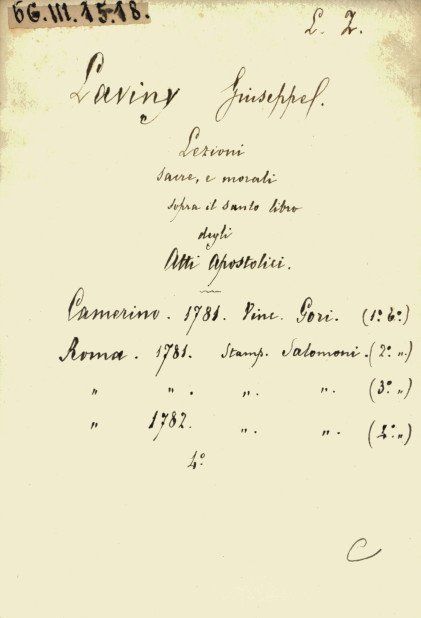 6G.III.15.18.
L. Z.
Laviny Giuseppe.
Lezioni
sacre, e morali
sopra il santo libro
degli
Atti Apostolici.
Camerino. 1781. Vinc. Gori. (1º. 6º.)
Roma. 1781. Stamp. Salomoni. (2º „)
„ „. „. „. (3º „)
„ 1782. „. „. (4º „)
4º
C